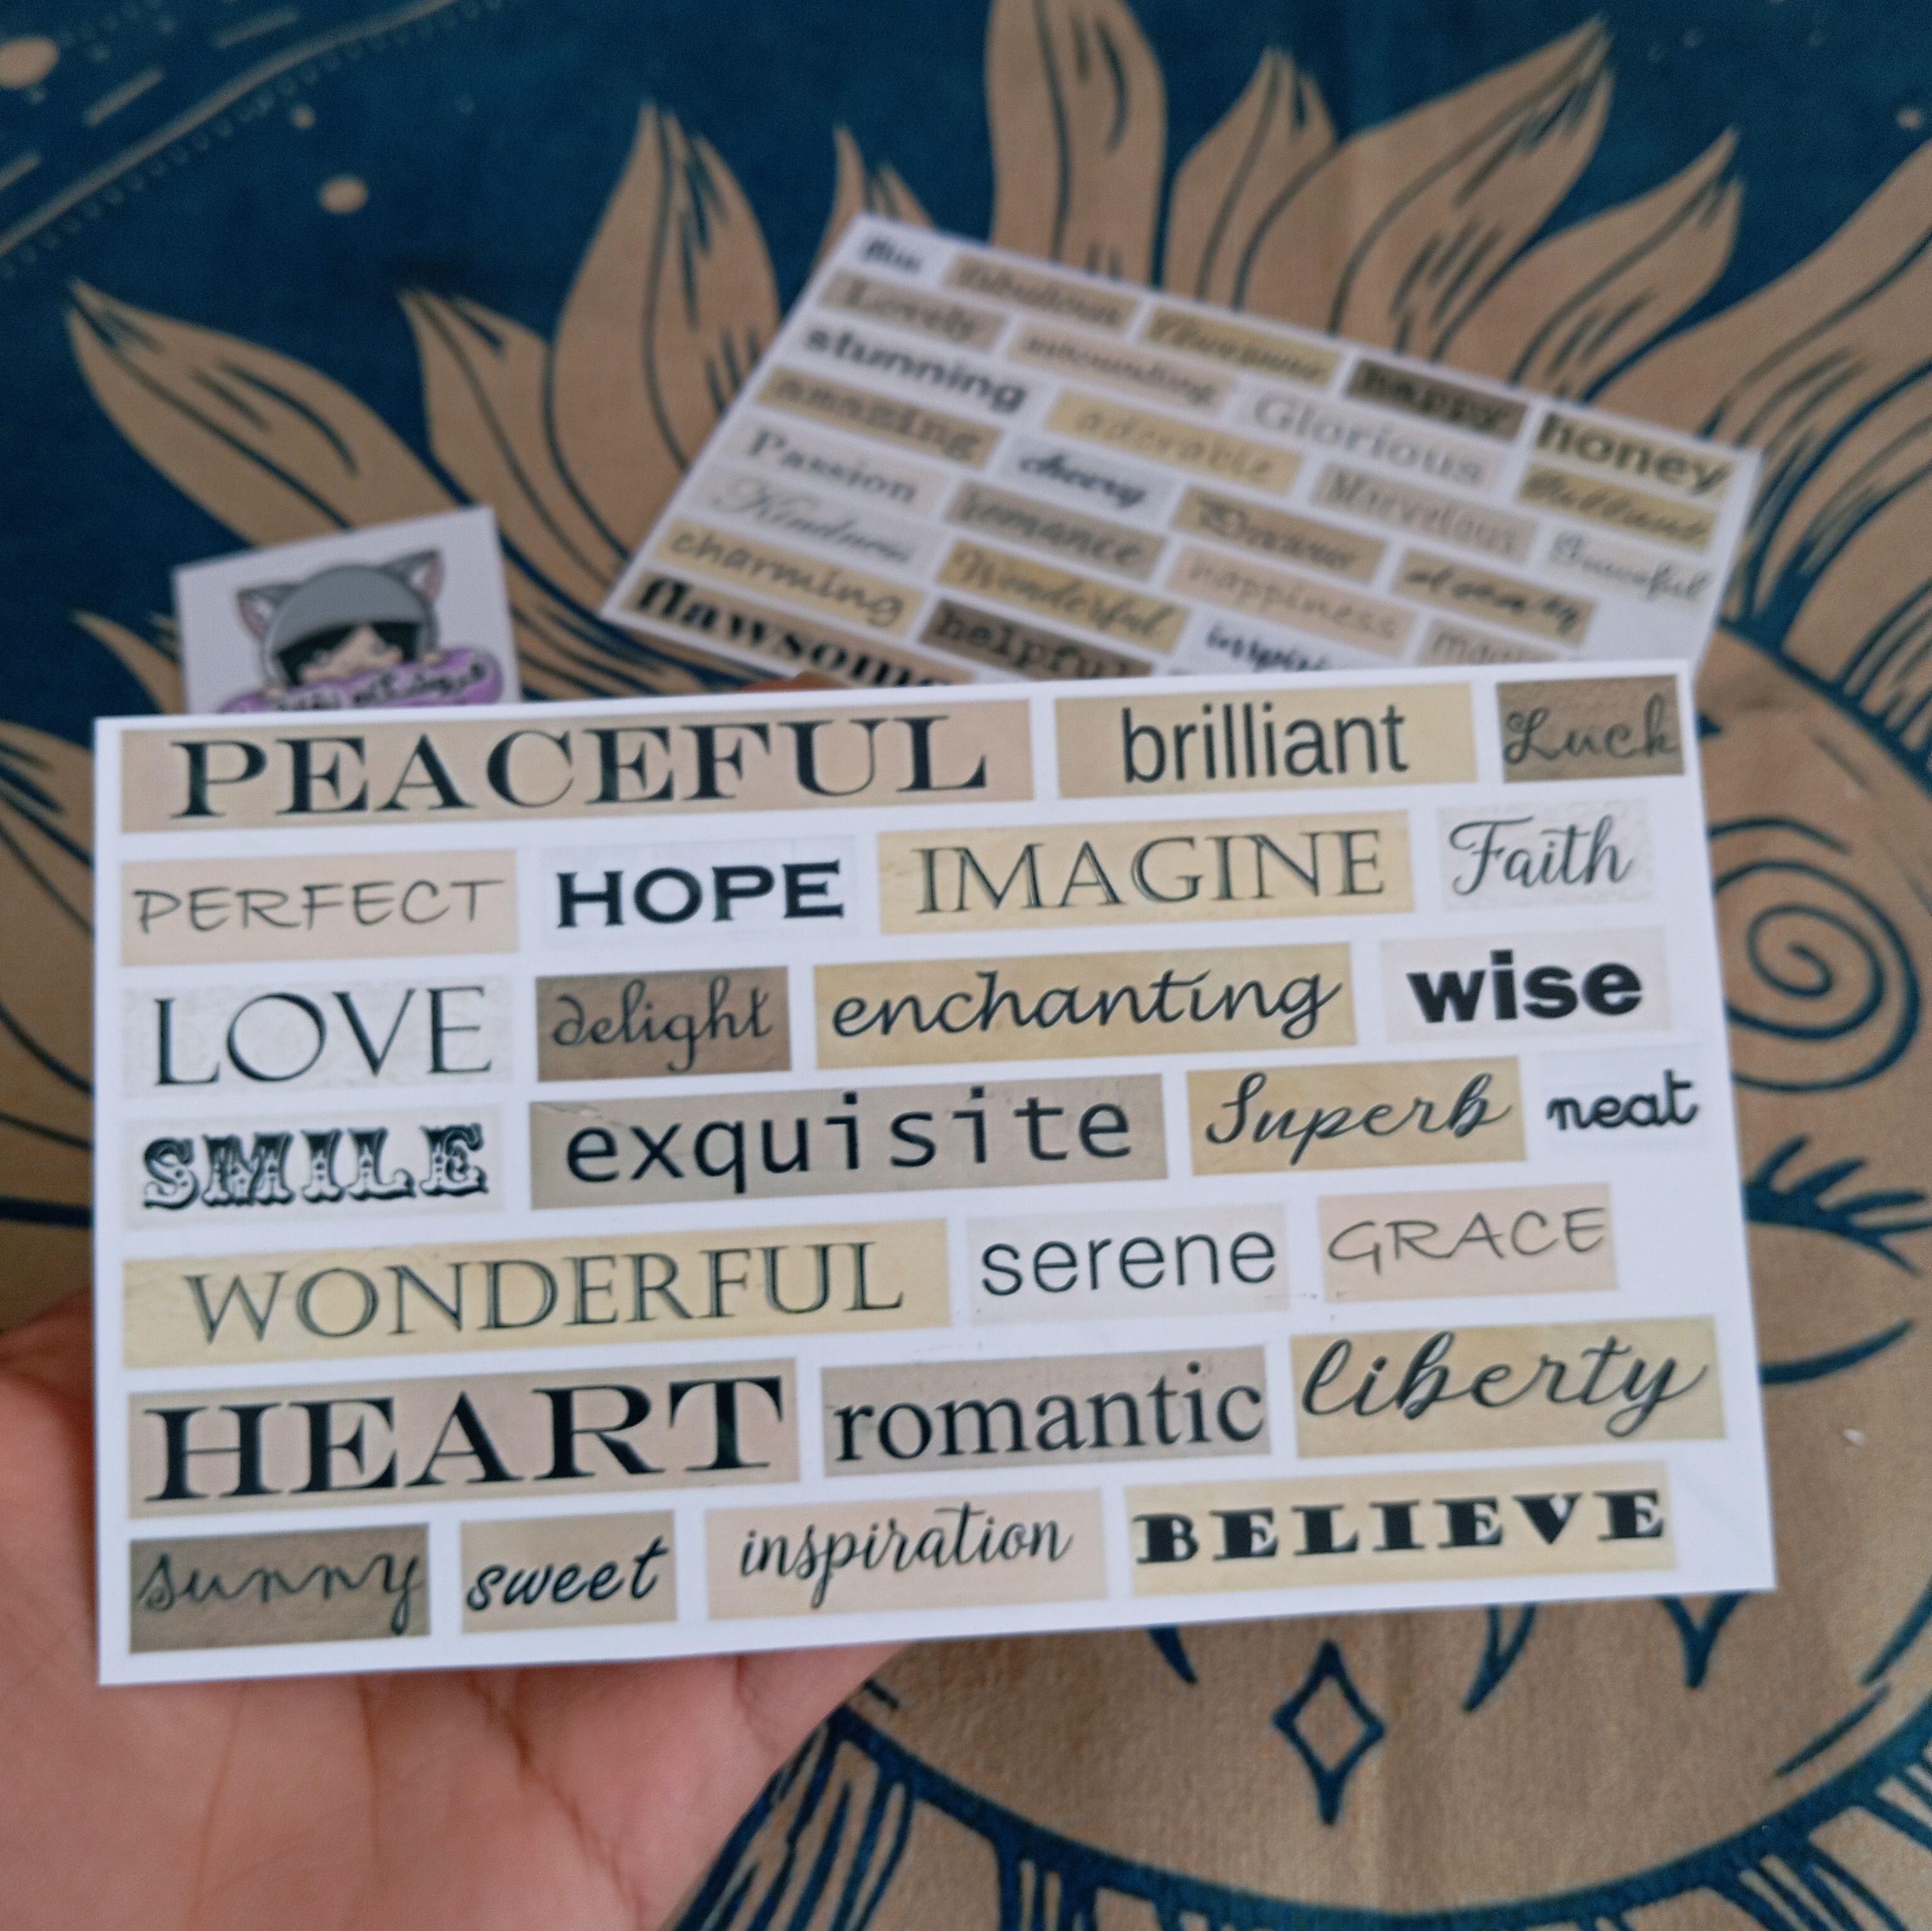 fabulous Awesome happy honey
Lovely astounding Glorious Brilliant
stunning adorable Marvelous Graceful
amazing cheery Precious dreamy
Passion romance happiness
Kindness Wonderful
charming helpful
flawsome
PEACEFUL brilliant Luck
PERFECT HOPE IMAGINE Faith
LOVE delight enchanting wise
SMILE exquisite Superb neat
WONDERFUL serene GRACE
HEART romantic liberty
sunny sweet inspiration BELIEVE